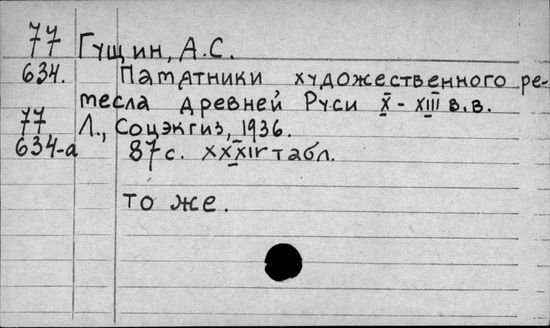 77 Гущин, А.С.
634. Памятники художественного ре-
месла древней Руси X - XIII в.в.
77 Л., Соцэкгиз, 1936.
634-а 87 с. XXXIV табл.
то же.